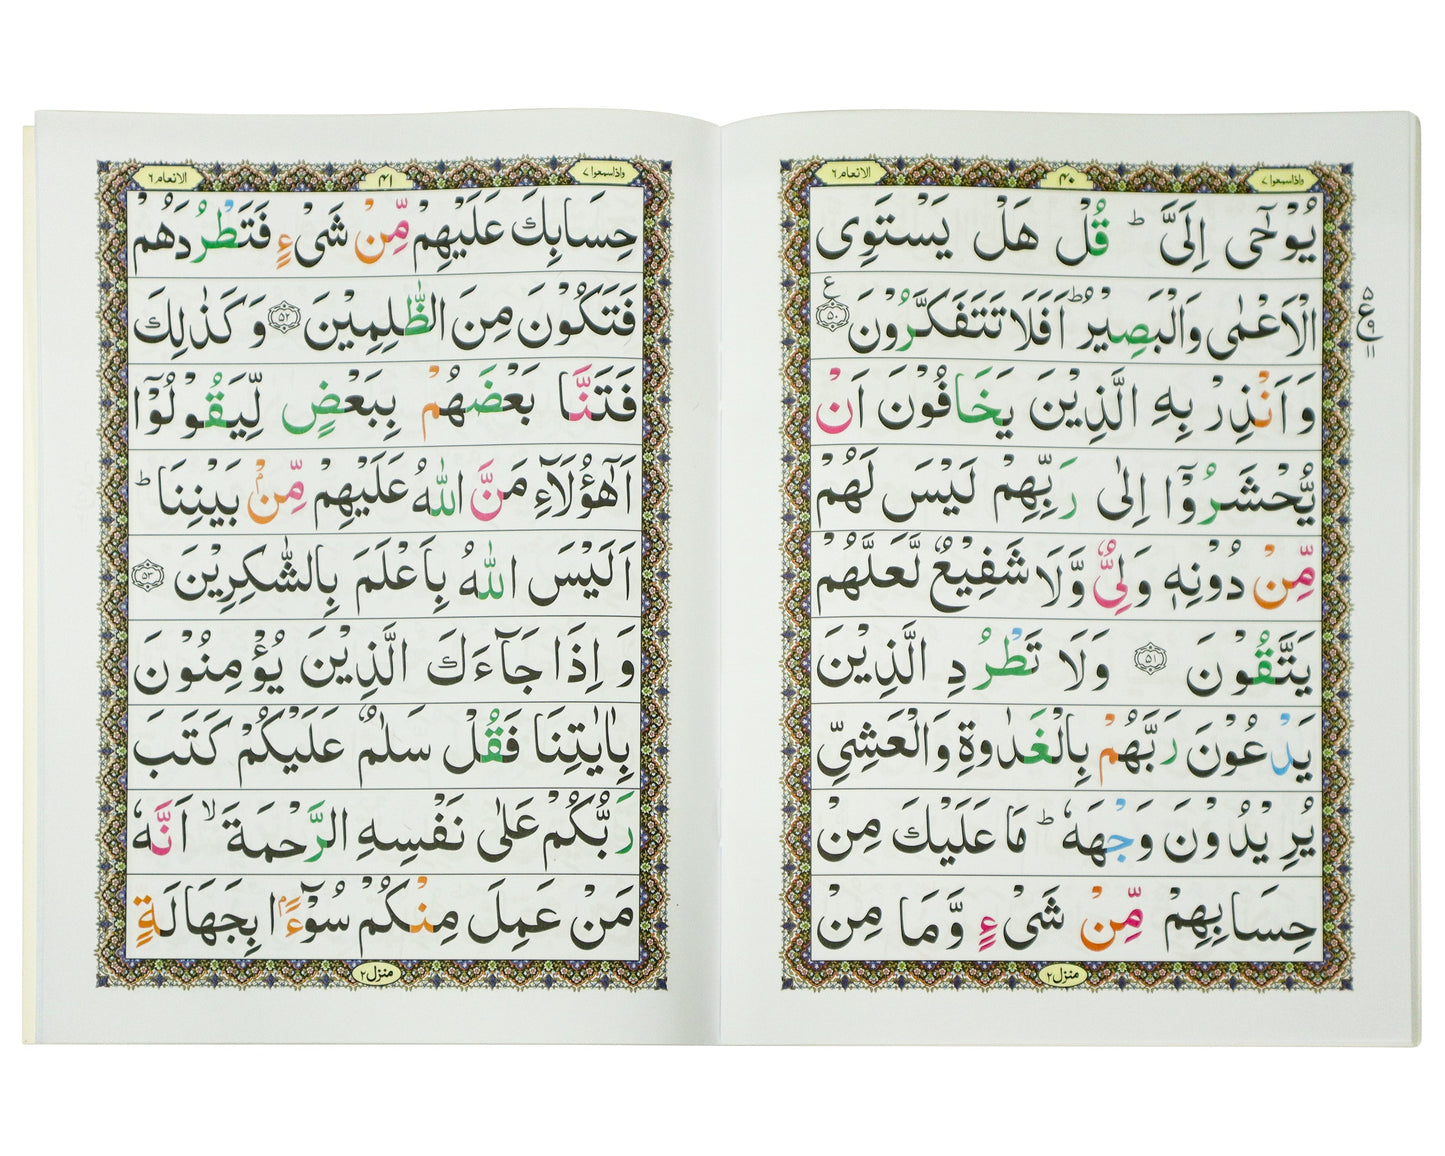 واذاسمعوا ۷
۴۰
الانعام ۶
يُوْحٰٓى اِلَىَّ ؕ قُلْ هَلْ يَسْتَوِى
الْاَعْمٰى وَالْبَصِيْرُ ؕ اَفَلَا تَتَفَكَّرُوْنَ ۵۰ ع
۵ ع ۹ ۱۱
وَ اَنْذِرْ بِهِ الَّذِيْنَ يَخَافُوْنَ اَنْ
يُّحْشَرُوْٓا اِلٰى رَبِّهِمْ لَيْسَ لَهُمْ
مِّنْ دُوْنِهٖ وَلِىٌّ وَّلَا شَفِيْعٌ لَّعَلَّهُمْ
يَتَّقُوْنَ ۵۱ وَلَا تَطْرُدِ الَّذِيْنَ
يَدْعُوْنَ رَبَّهُمْ بِالْغَدٰوةِ وَالْعَشِىِّ
يُرِيْدُوْنَ وَجْهَهٗ ؕ مَا عَلَيْكَ مِنْ
حِسَابِهِمْ مِّنْ شَىْءٍ وَّمَا مِنْ
منزل ۲
واذاسمعوا ۷
۴۱
الانعام ۶
حِسَابِكَ عَلَيْهِمْ مِّنْ شَىْءٍ فَتَطْرُدَهُمْ
فَتَكُوْنَ مِنَ الظّٰلِمِيْنَ ۵۲ وَكَذٰلِكَ
فَتَنَّا بَعْضَهُمْ بِبَعْضٍ لِّيَقُوْلُوْٓا
اَهٰٓؤُلَآءِ مَنَّ اللّٰهُ عَلَيْهِمْ مِّنْۢ بَيْنِنَا ؕ
اَلَيْسَ اللّٰهُ بِاَعْلَمَ بِالشّٰكِرِيْنَ ۵۳
وَ اِذَا جَآءَكَ الَّذِيْنَ يُؤْمِنُوْنَ
بِاٰيٰتِنَا فَقُلْ سَلٰمٌ عَلَيْكُمْ كَتَبَ
رَبُّكُمْ عَلٰى نَفْسِهِ الرَّحْمَةَ ۙ اَنَّهٗ
مَنْ عَمِلَ مِنْكُمْ سُوْٓءًۢا بِجَهَالَةٍ
منزل ۲